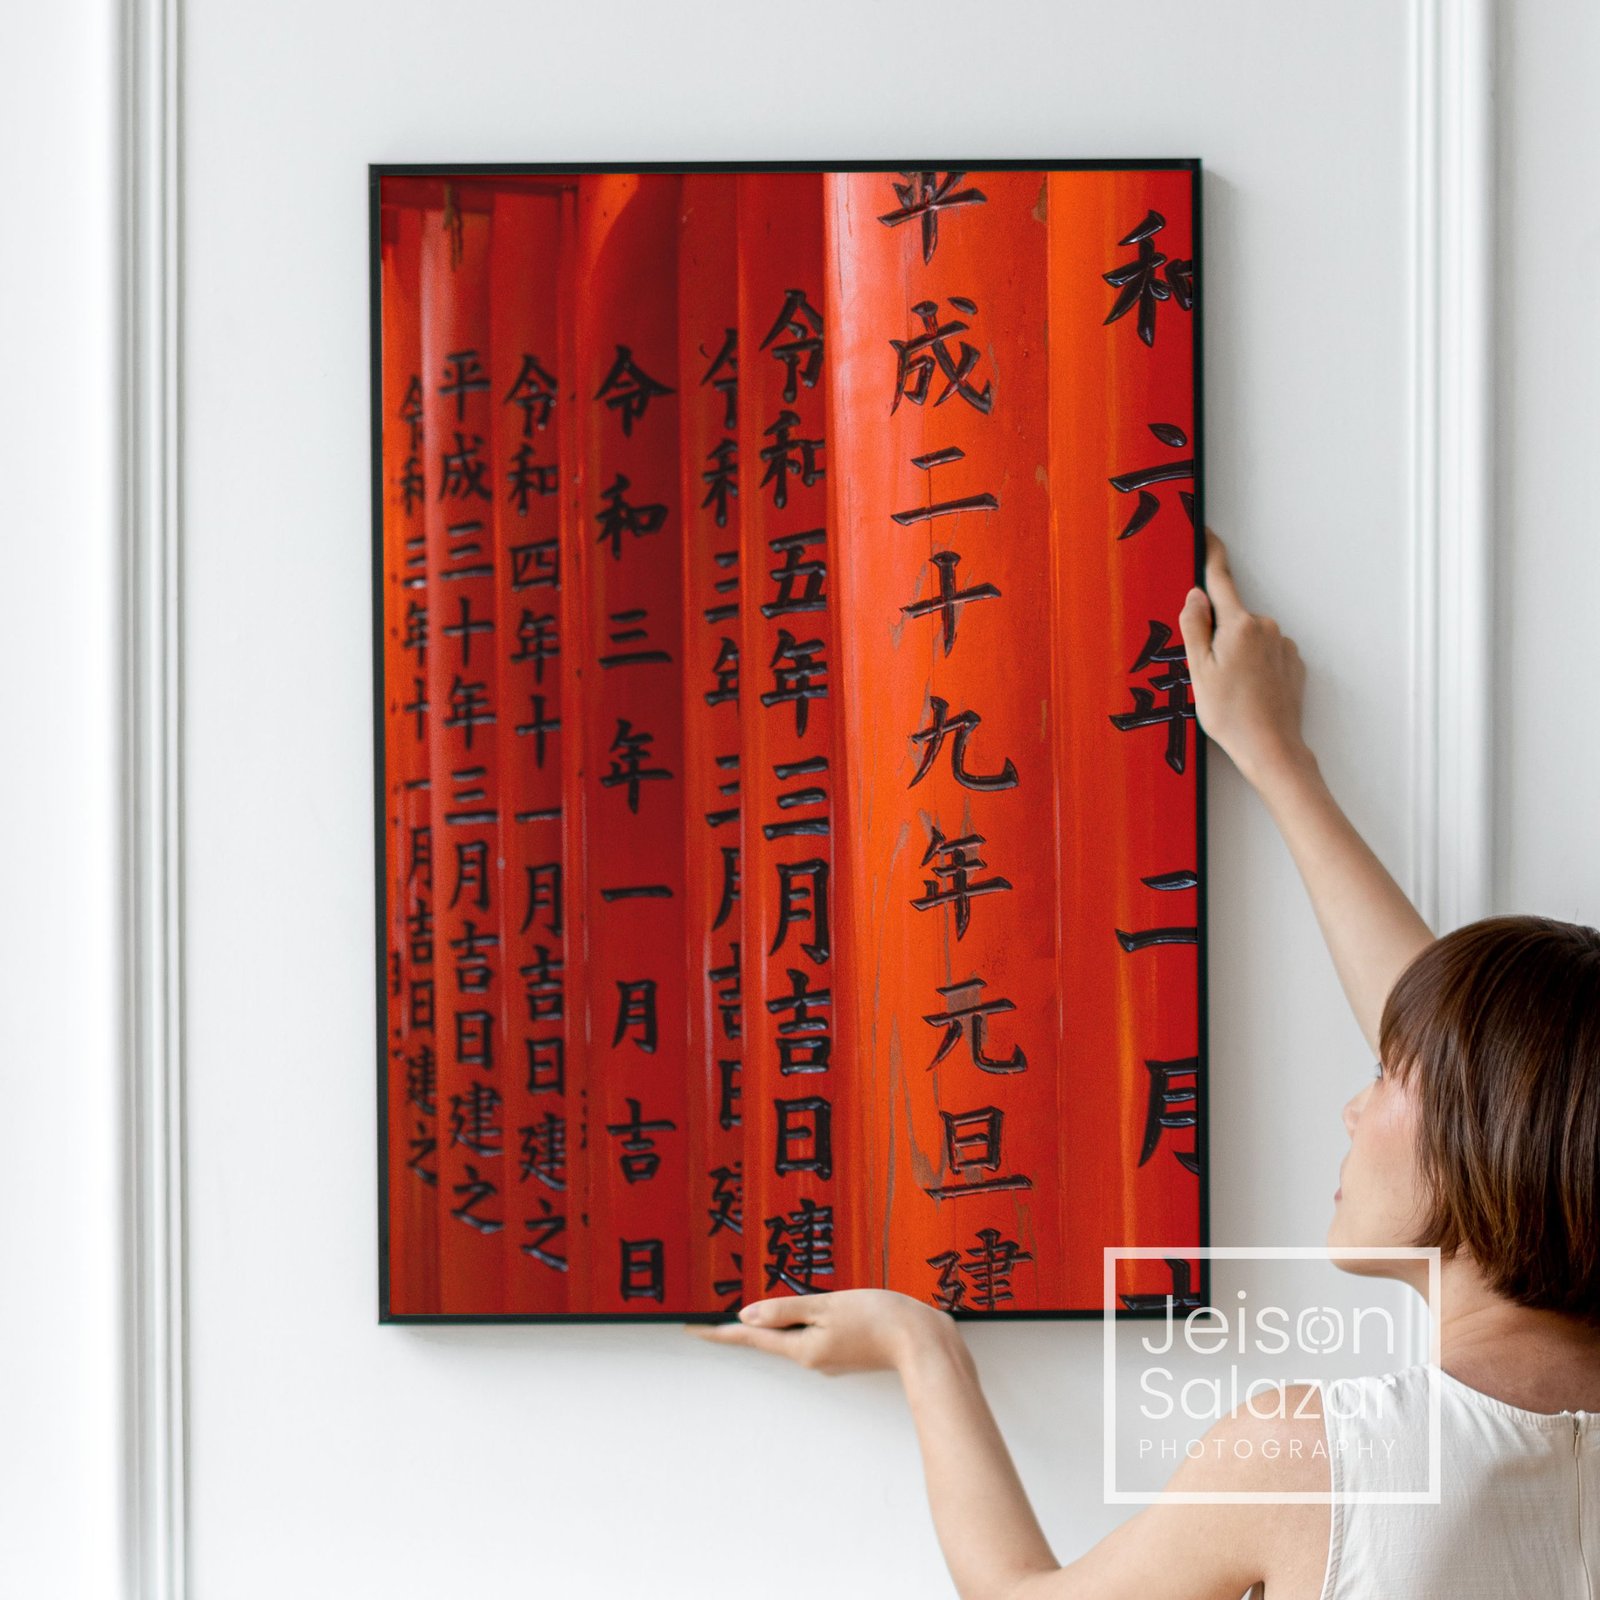 和六年二月
平成二十九年元旦建
令和五年三月吉日建
令和三年三月吉日建
令和三年一月吉日
令和四年十一月吉日建之
平成三十年三月吉日建之
令和三年十一月吉日建之
Jeison
Salazar
PHOTOGRAPHY